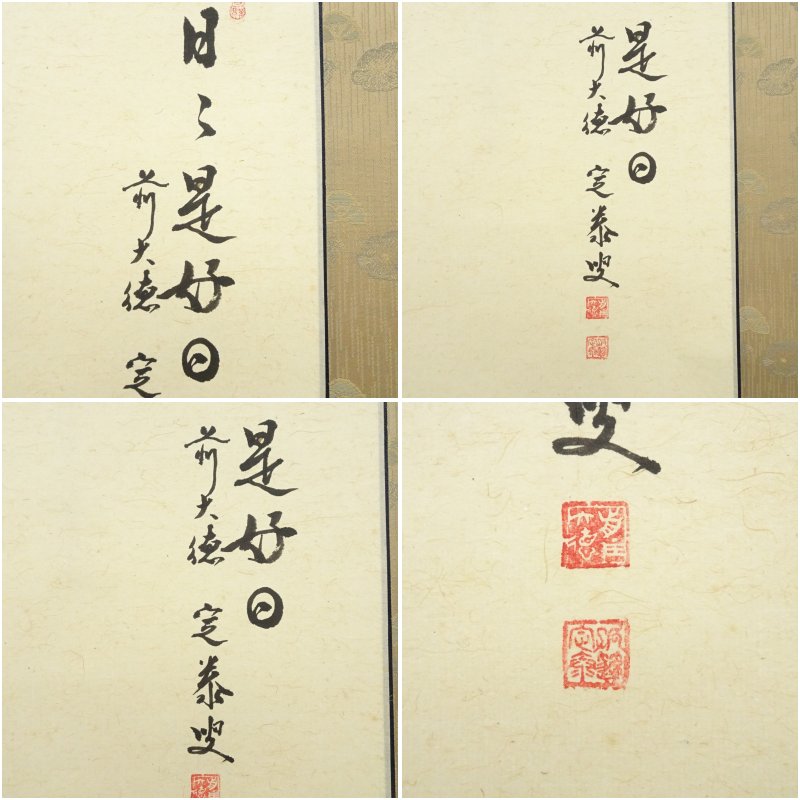 日々是好日
前大徳 定
是好日
前大徳 定泰叟
是好日
前大徳 定泰叟
叟